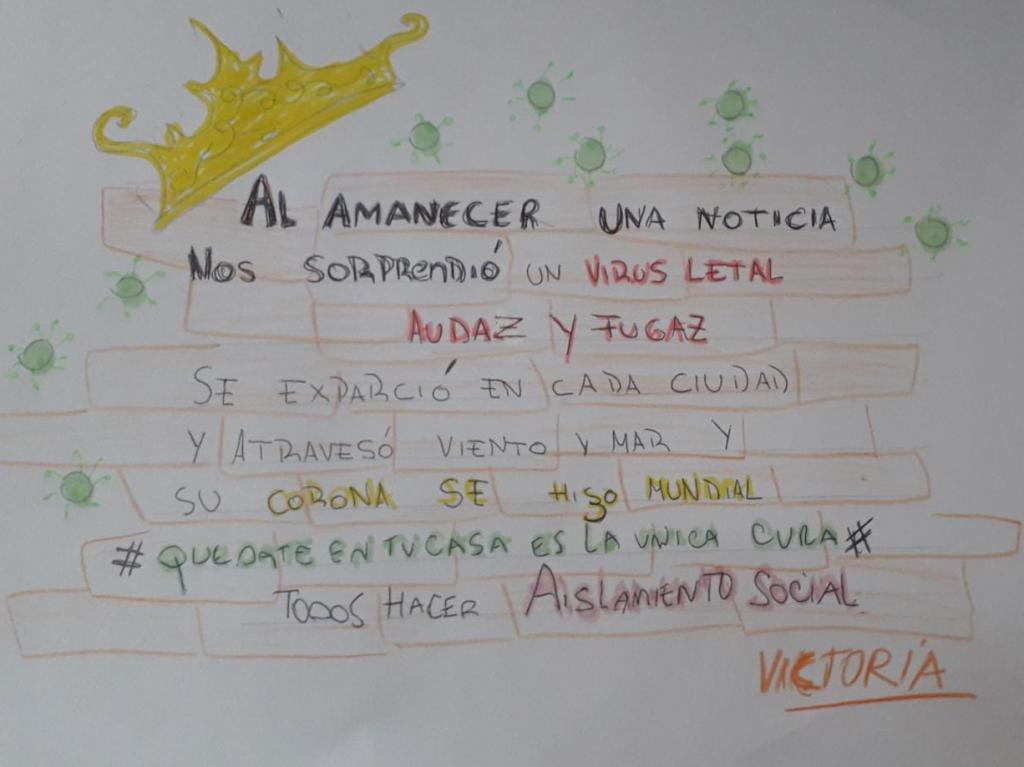 AL AMANECER UNA NOTICIA
NOS SORPRENDIÓ UN VIRUS LETAL
AUDAZ Y FUGAZ
SE EXPARCIÓ EN CADA CIUDAD
Y ATRAVESÓ VIENTO Y MAR Y
SU CORONA SE HISO MUNDIAL
# QUEDATE EN TU CASA ES LA UNICA CURA #
TODOS HACER AISLAMIENTO SOCIAL
VICTORIA